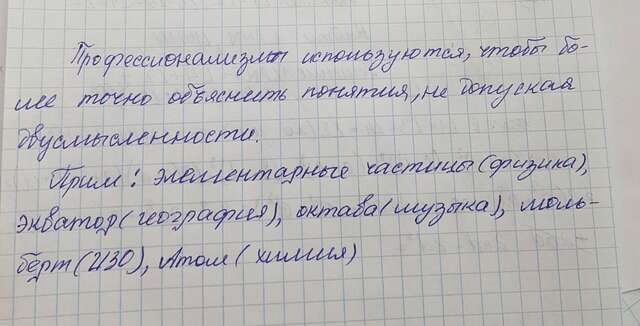 Профессионализмы используются, чтобы бо-
лее точно объяснить понятия, не допуская
двусмысленности.
Прим: элементарные частицы (физика),
экватор (география), октава (музыка), моль-
берт (ИЗО), Атом (химия)